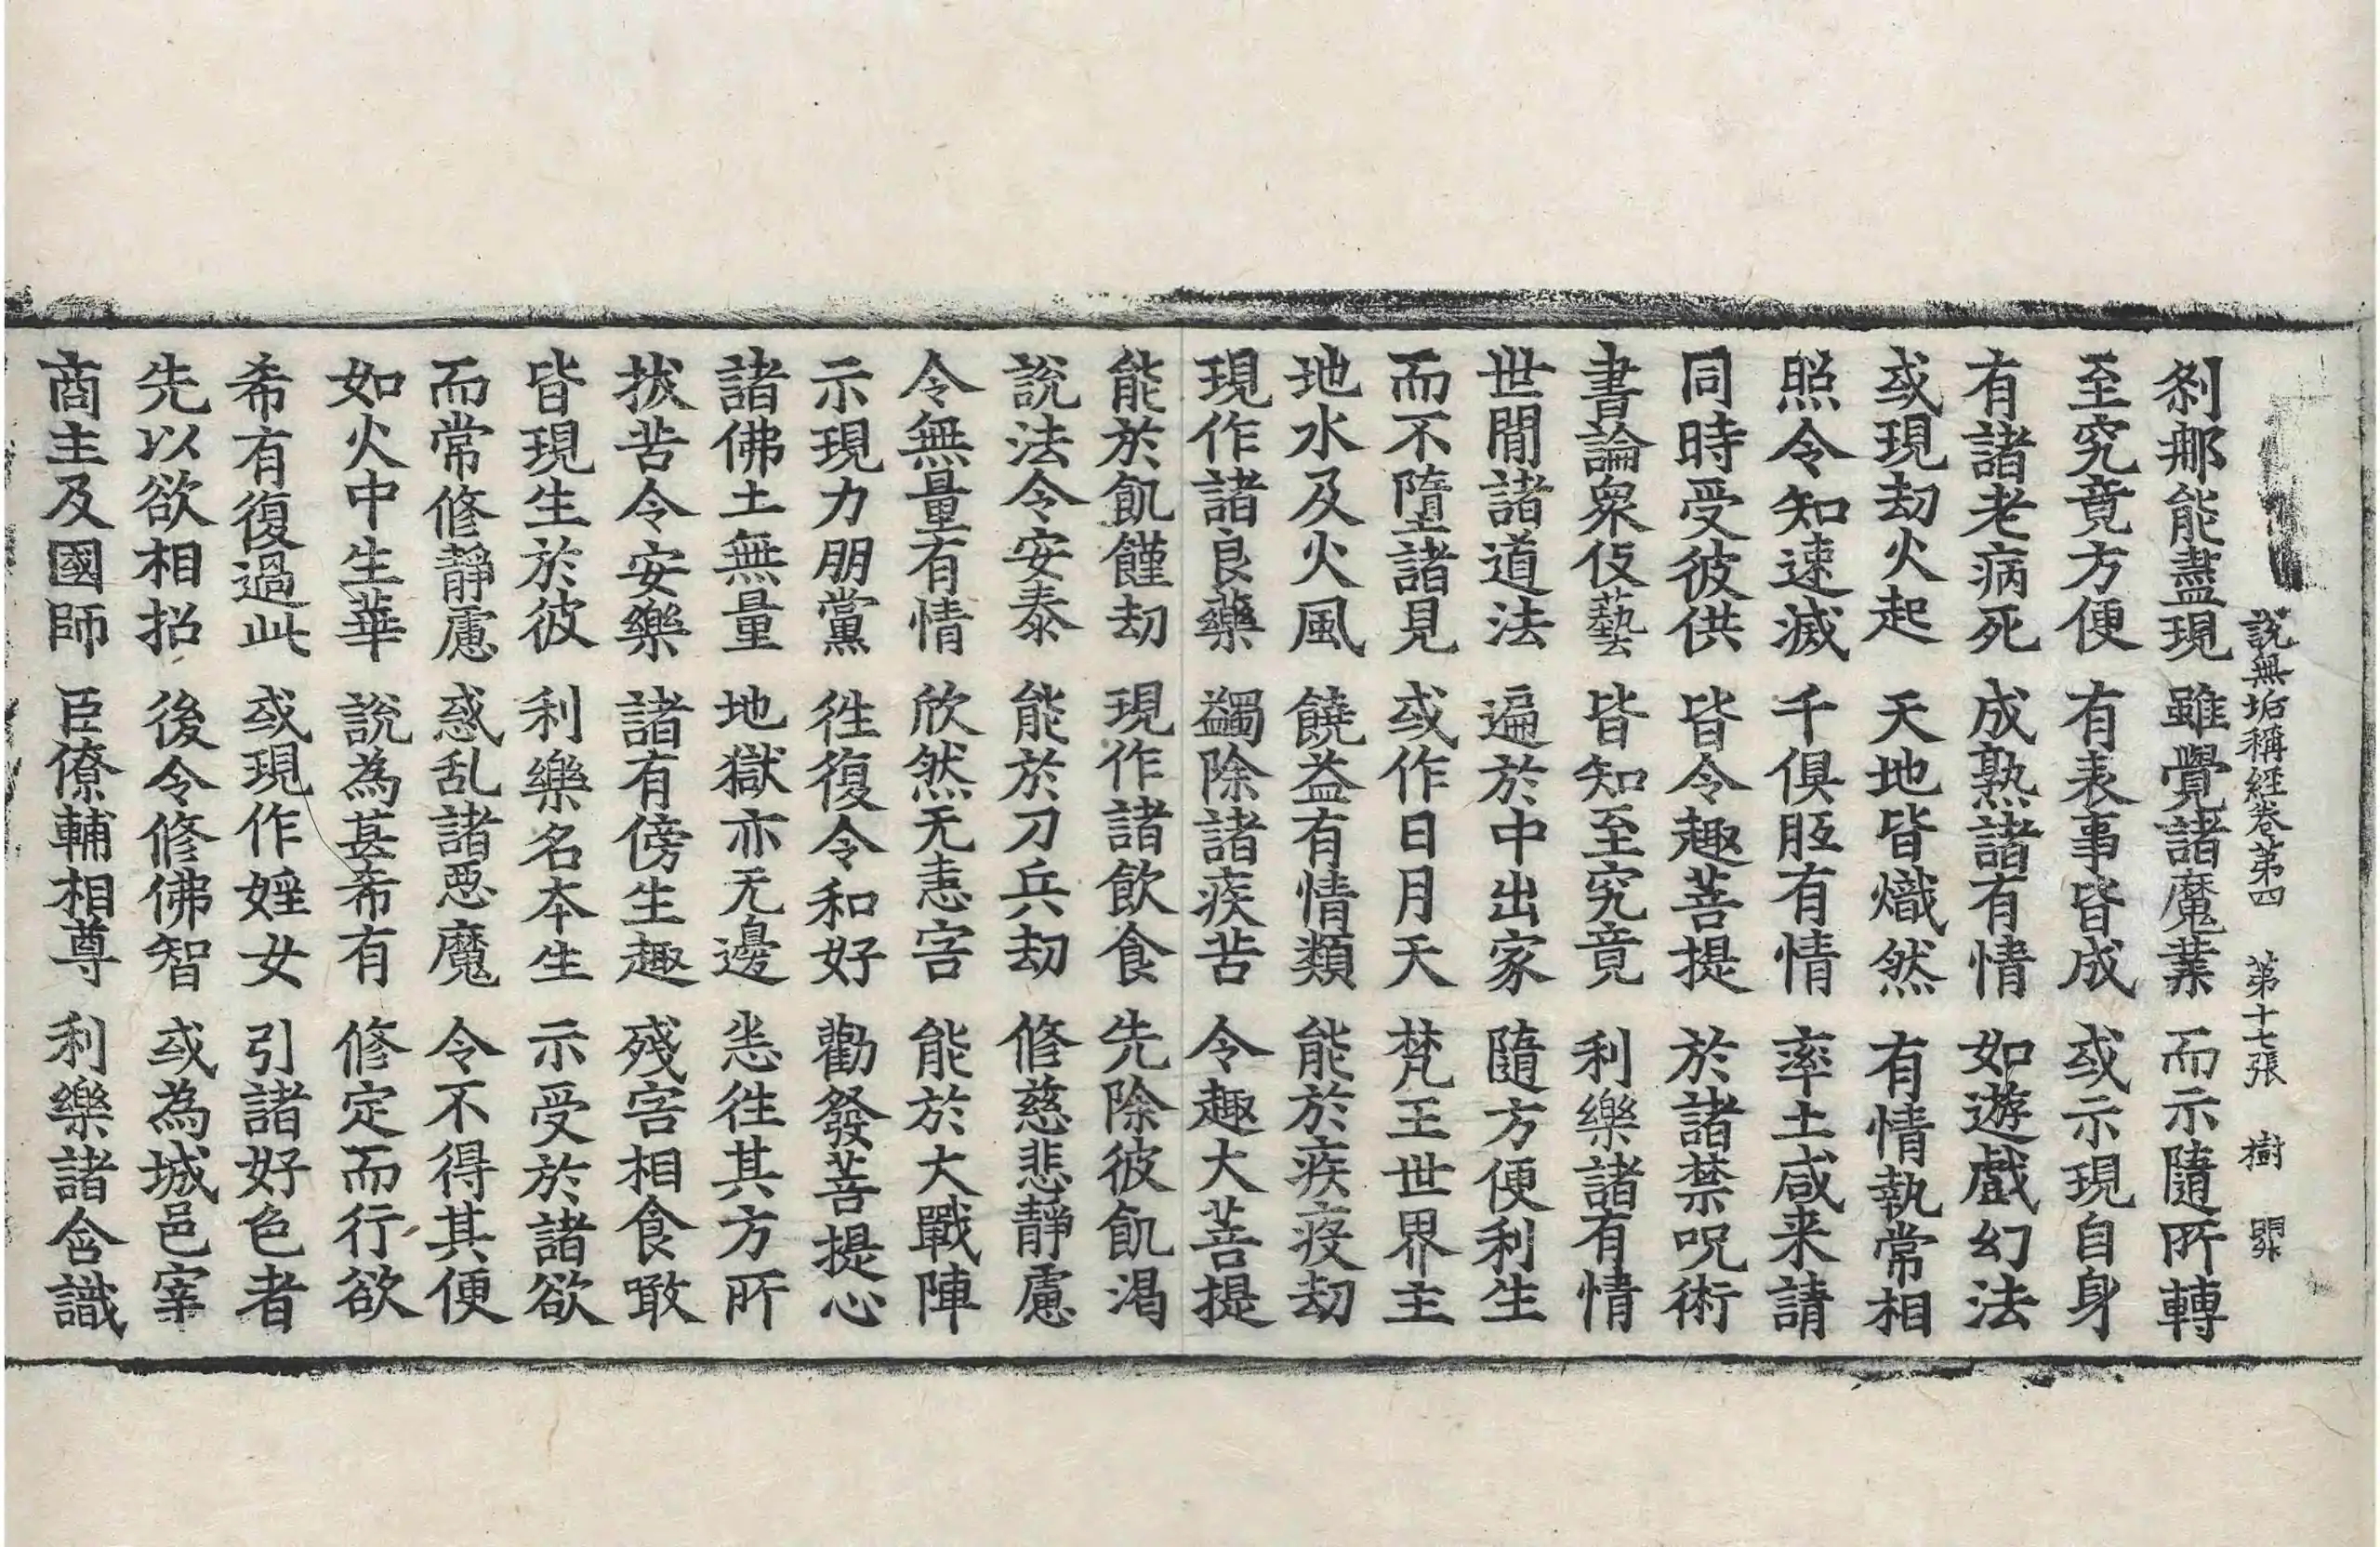 說無垢稱經卷第四 第十七張 樹
刹那能盡現 雖覺諸魔業 而示隨所轉
至究竟方便 有表事皆成 或示現自身
有諸老病死 成熟諸有情 如遊戲幻法
或現劫火起 天地皆熾然 有情執常相
照令知速滅 千俱胝有情 率土咸来請
同時受彼供 皆令趣菩提 於諸禁呪術
書論衆伎藝 皆知至究竟 利樂諸有情
世間諸道法 遍於中出家 隨方便利生
而不墮諸見 或作日月天 梵王世界主
地水及火風 饒益有情類 能於疾疫劫
現作諸良藥 蠲除諸疾苦 令趣大菩提
能於飢饉劫 現作諸飲食 先除彼飢渴
說法令安泰 能於刀兵劫 修慈悲靜慮
令無量有情 欣然无恚害 能於大戰陣
示現力朋黨 徃復令和好 勸發菩提心
諸佛土無量 地獄亦无邊 悉徃其方所
拔苦令安樂 諸有傍生趣 殘害相食噉
皆現生於彼 利樂名本生 示受於諸欲
而常修靜慮 惑乱諸惡魔 令不得其便
如火中生華 說為甚希有 修定而行欲
希有復過此 或現作婬女 引諸好色者
先以欲相招 後令修佛智 或為城邑宰
商主及國師 臣僚輔相尊 利樂諸含識